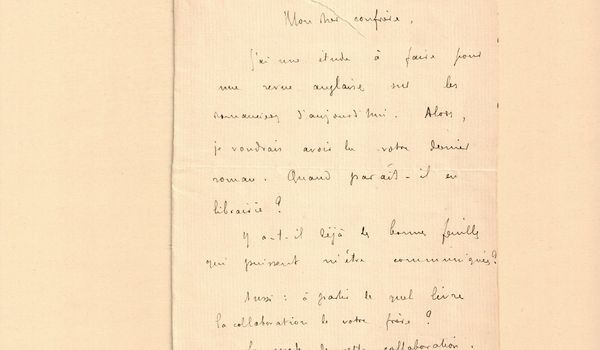 Mon cher confrère,
J'ai une étude à faire pour
une revue anglaise sur les
romanciers d'aujourd'hui. Alors,
je voudrais avoir lu votre dernier
roman. Quand paraît-il en
librairie ?
Y a-t-il déjà de bonnes feuilles
qui puissent m'être communiquées ?
Aussi : à partir de quel livre
la collaboration de votre frère ?
de cette collaboration.